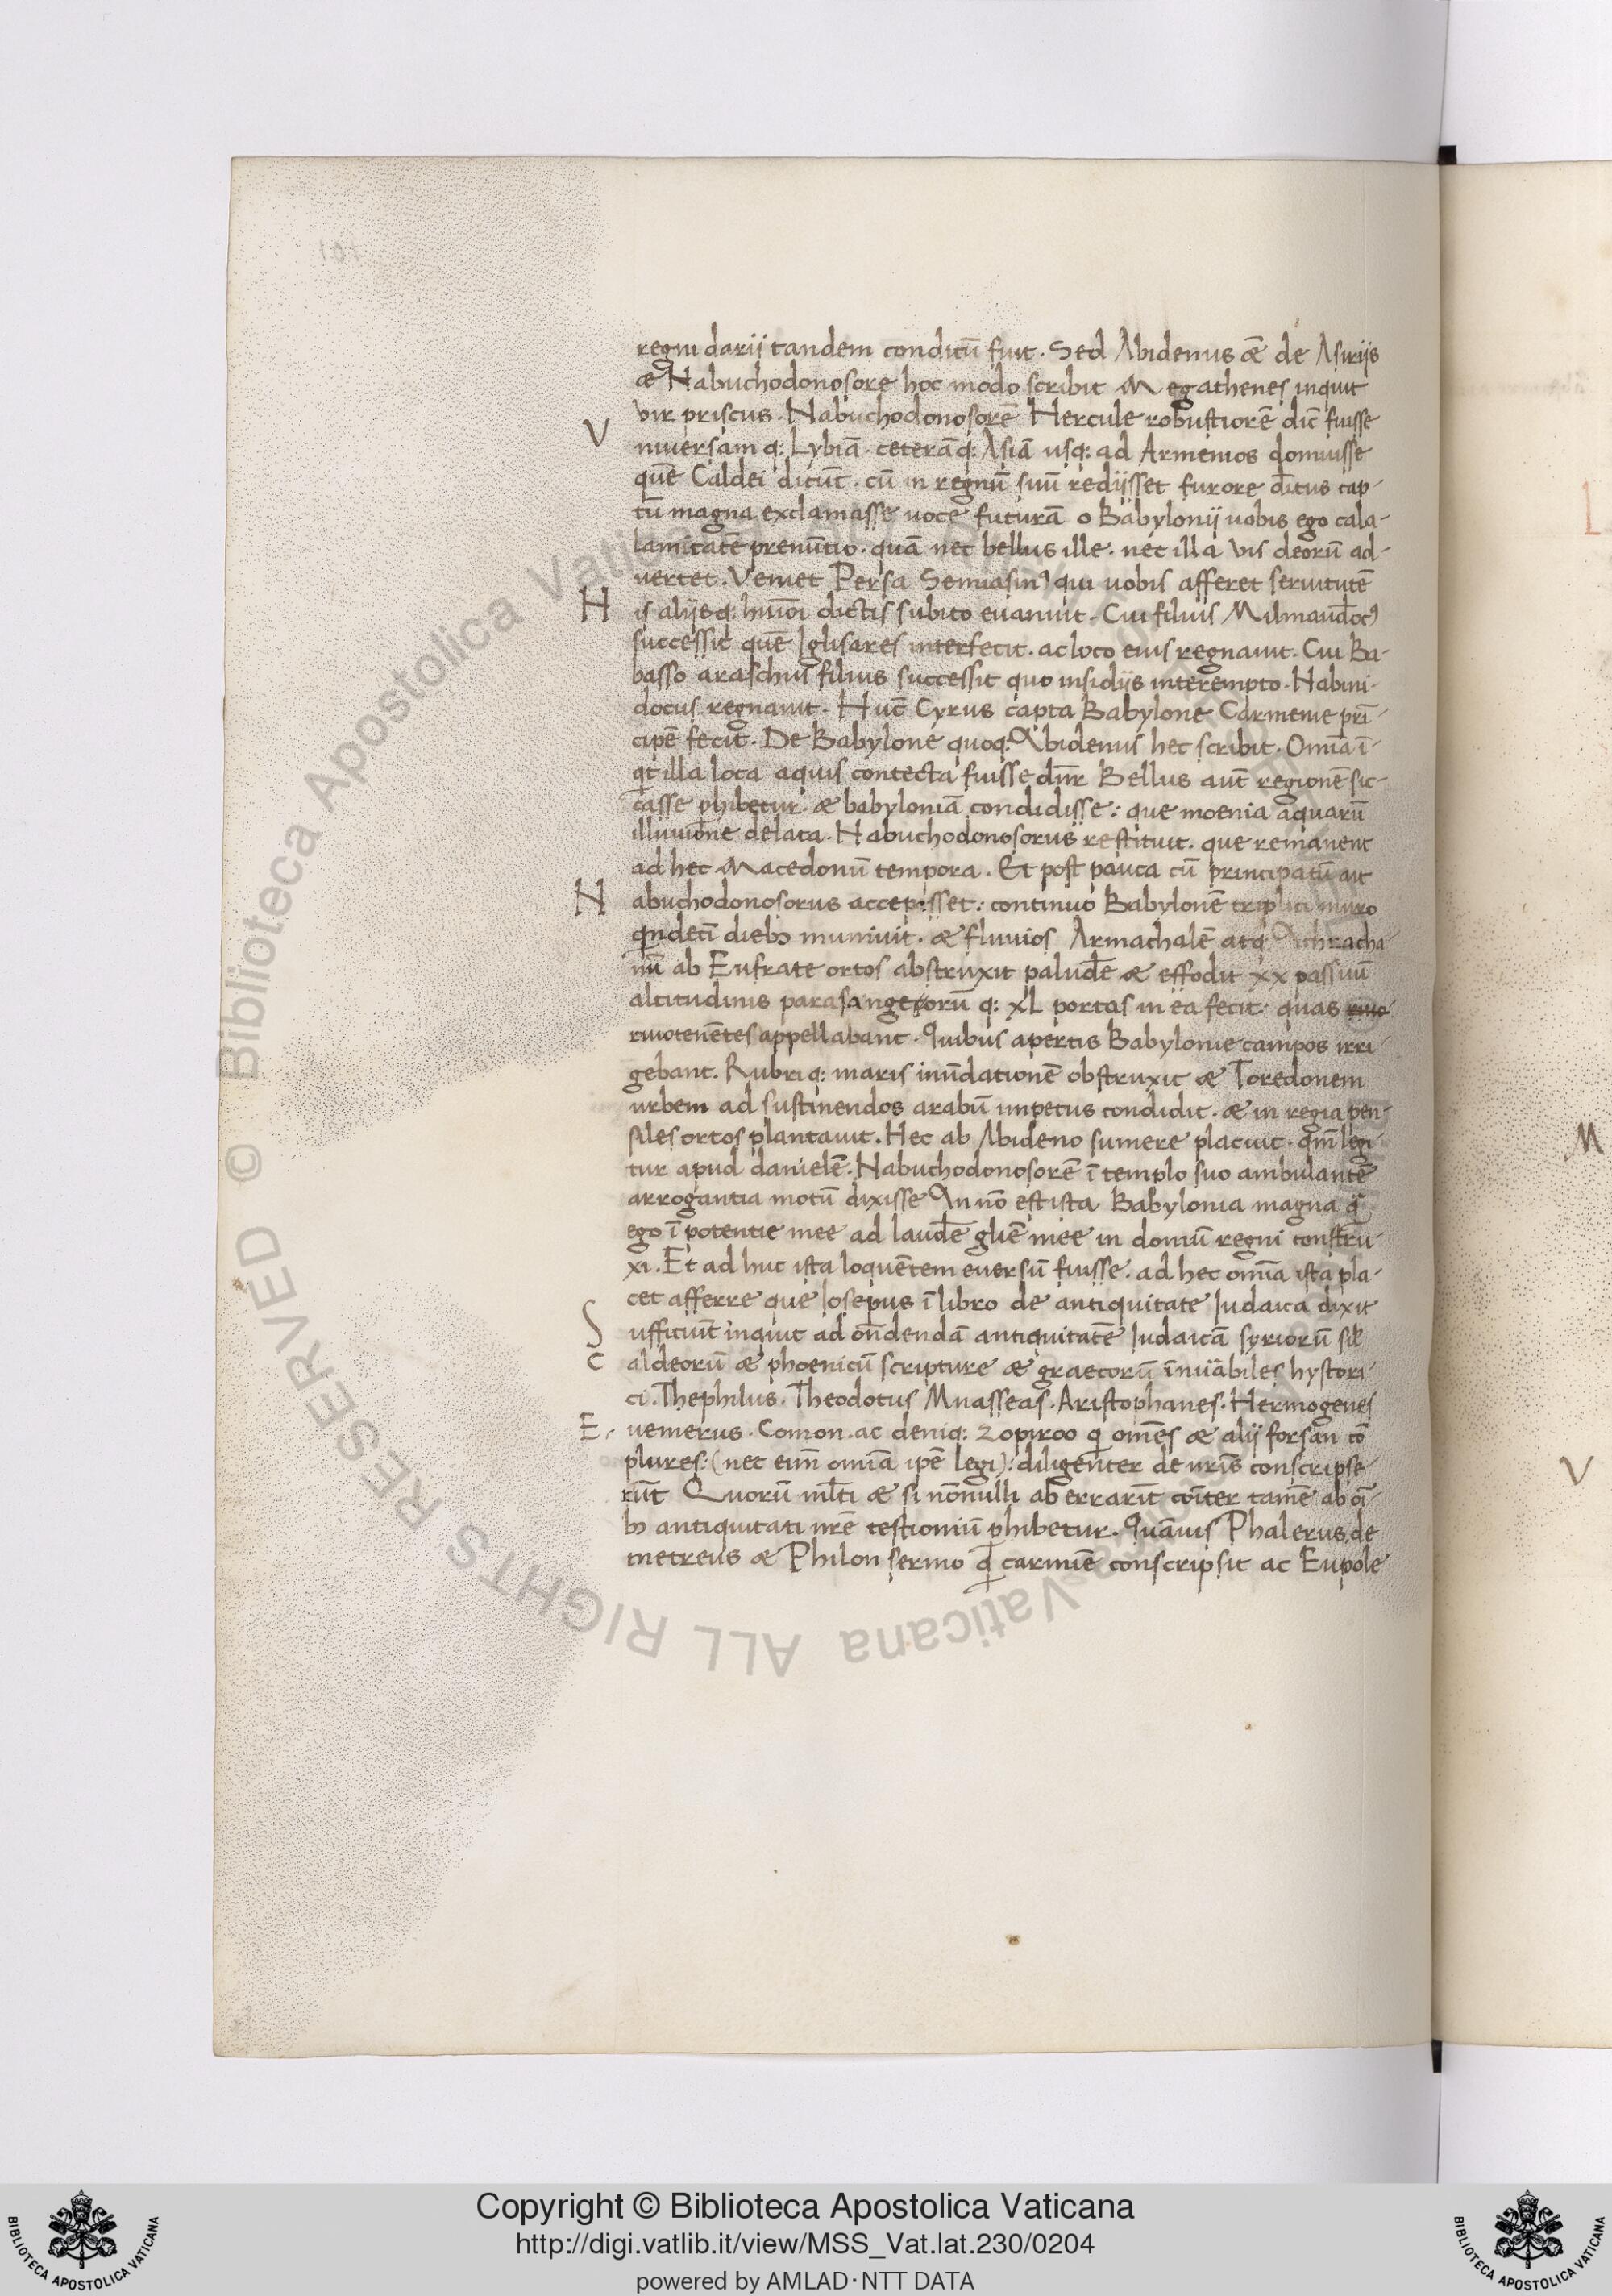 regni darij tandem conditū fuit. Sed Abidenus ǣ de Asirijs
æ Nabuchodonosore hoc modo scribit Megathenes inquit
vir priscus. Nabuchodonosorē Hercule robustiorē dic̄ fuisse
V niuersam q: Lybiā. ceterāq: Asiā usq: ad Armenios domuisse
quē Caldei dicūt. cū in regnū suū redijsset furore d̄itus cap-
tū magna exclamasse uoce futurā o Babylonij uobis ego cala-
lamitatē prenūtio. quā nec bellus ille. nec illa vis deorū ad-
uertet. Veniet Persa Semiasinꝰ qui uobis afferet seruitutē
H is alijs q: huiōi dictis subito euanuit. Cui filius Milmaud̄ocꝰ
successit quē Iglisares interfecit. ac loco eius regnauit. Cui Ba-
basso araschus filius successit quo insidijs interempto. Nabini-
docus regnauit. Hūc Cyrus capta Babylone Carmenie prī-
cipē fecit. De Babylone quoq: Abidenus hec scribit. Omīa ī-
qt illa loca aquis contecta fuisse dn̄r Bellus aut̄ regionē sic-
casse phibetur. æ babyloniā condidisse: que moenia aquarū
illuuione delata. Nabuchodonosorus restituit. que remanent
ad hec Macedonū tempora. Et post pauca cū principatū ait
N abuchodonosorus accepisset: continuo Babylonē triplici muro
qndecī diebꝫ muniuit. æ fluuios Armachalē atq Achracha
nū ab Eufrate ortos abstruxit paludē æ effodit xx passuū
altitudinis parasangecorū q: XL portas in ea fecit quas riuo
riuotenētes appellabant. Quibus apertis Babylonie campos irri-
gebant. Rubri q: maris inūdationē obstruxit æ Toredonem
urbem ad sustinendos arabū impetus condidit. æ in regia pen-
siles ortos plantauit. Hec ab Abideno sumere placuit. qm̄ legi-
tur apud danielē. Nabuchodonosorē ī templo suo ambulantē
arrogantia motū dixisse An nō est ista Babylonia magna q̄
ego ī potentie mee ad laudē gliē mee in domū regni constru-
xi. Et ad huc ista loquētem euersū fuisse. ad hec omīa ista pla-
cet afferre que Iosepus ī libro de antiquitate Iudaica dixit
S ufficiūt inqiut ad on̄dendā antiquitatē Iudaicā syriorū sil̄
C aldeorū æ phoenicū scripture æ graecorū īnūabiles hystori-
ci. Thephilus. Theodotus Mnasseas. Aristophanes. Hermogenes
E. uemerus. Comon. ac deniq: zopiroo q omēs æ alij forsan cō
plures: (nec eīm omīa ipē legi): diligenter de nrīs conscripse-
rūt Quorū ml̄ti æ si nōnulli aberrarīt coīter tamē ab oī-
bꝫ antiquitati nrē testioniū phibetur. Quāuis Phalerus. de
metreus æ Philon sermo q carmīe conscripsit ac Eupole
Copyright © Biblioteca Apostolica Vaticana
http://digi.vatlib.it/view/MSS_Vat.lat.230/0204
powered by AMLAD·NTT DATA